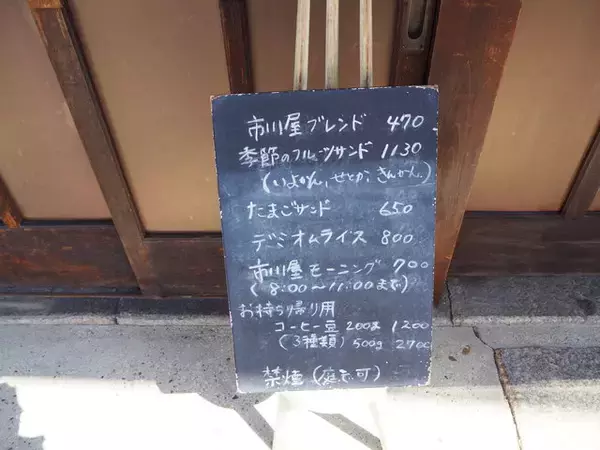 市川屋ブレンド 470
季節のフルーツサンド 1130
(いよかん、せとか、きんかん)
たまごサンド 650
デミオムライス 800
市川屋モーニング 700
(8:00～11:00まで)
お持ち帰り用
コーヒー豆 200g 1200
(3種類) 500g 2700
禁煙(庭は可)